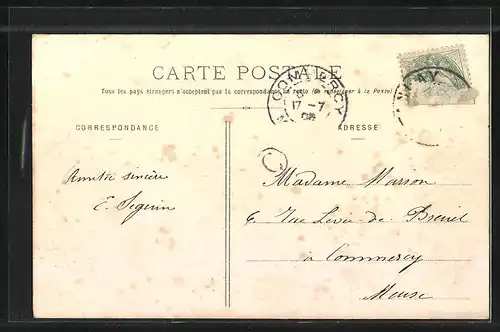 CARTE POSTALE
Tous les pays étrangers n'acceptent pas la correspondance au recto (se renseigner à la Poste)
COMMERCY
17-7
CORRESPONDANCE
ADRESSE
Amitié sincère
E. Seguin
Madame Masson
6, Rue Levée-de-Breuil
à Commercy
Meuse